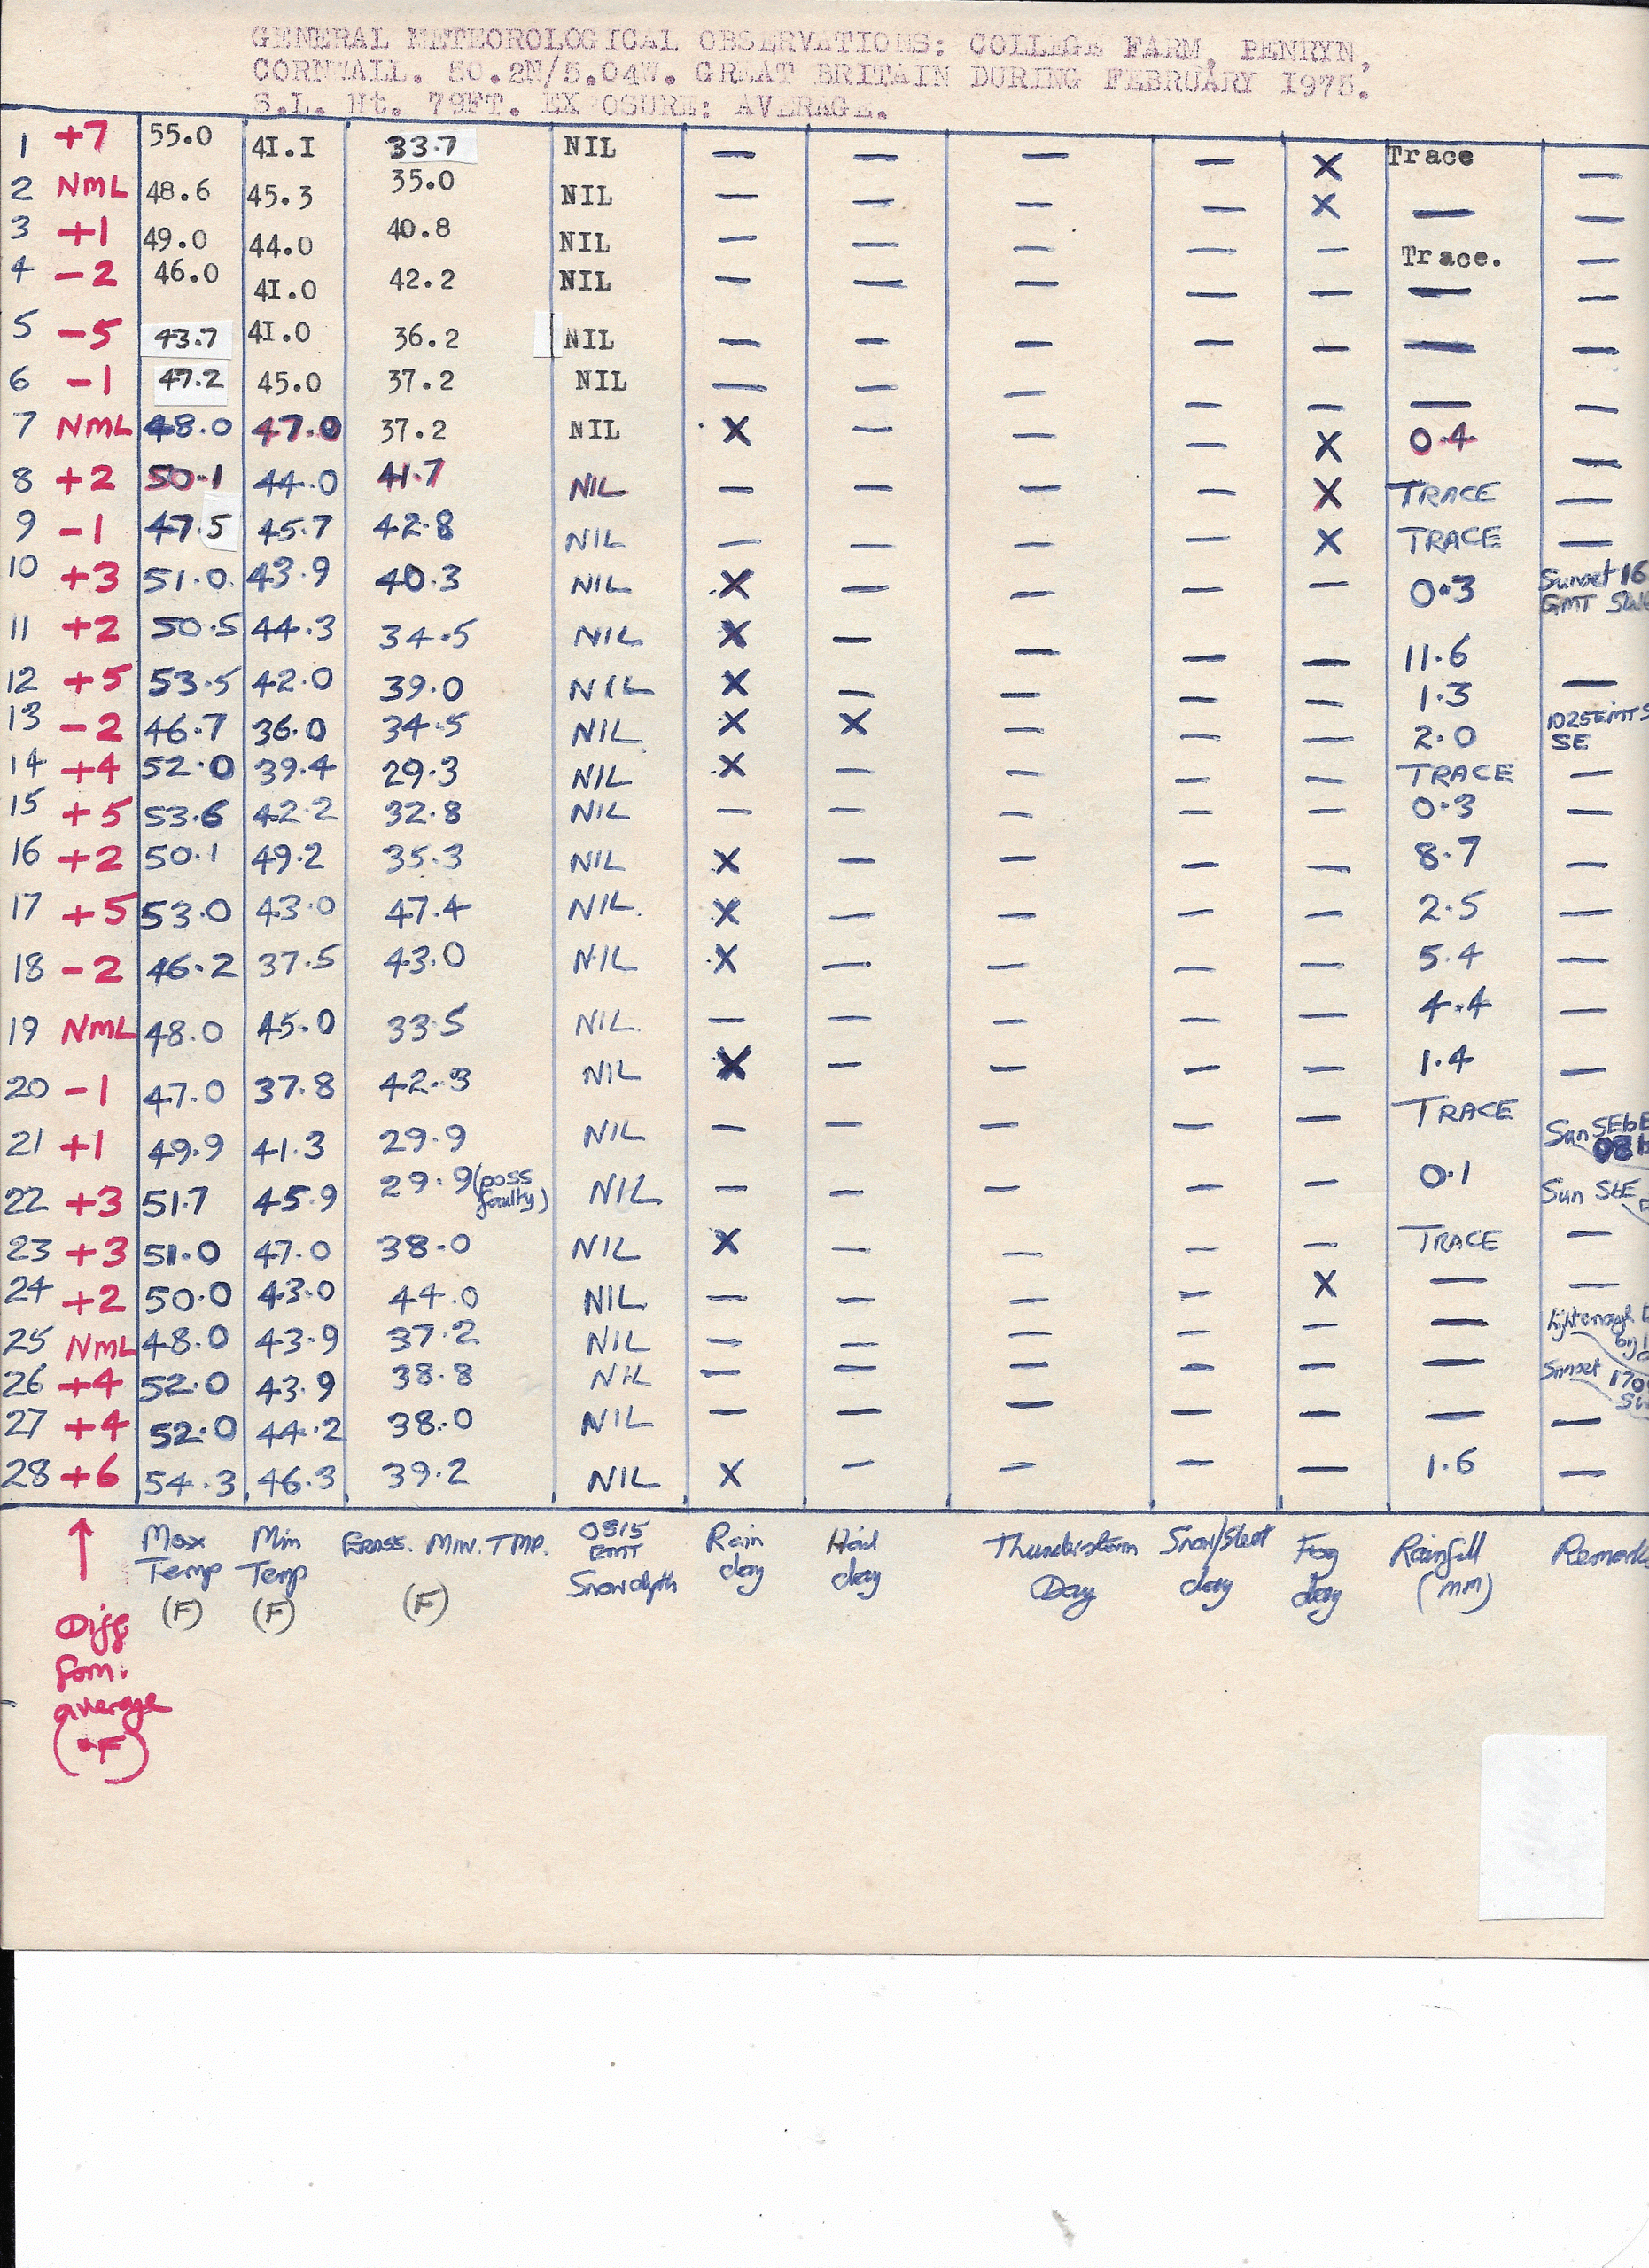 GENERAL METEOROLOGICAL OBSERVATIONS: COLLEGE FARM, PENRYN,
CORNWALL. 50.2N/5.04W. GREAT BRITAIN DURING FEBRUARY 1975.
S.L. Ht. 79FT. EXPOSURE: AVERAGE.
1 +7 55.0 41.1 33.7 NIL — — — — X Trace —
2 NML 48.6 45.3 35.0 NIL — — — — X — —
3 +1 49.0 44.0 40.8 NIL — — — — — Trace. —
4 -2 46.0 41.0 42.2 NIL — — — — — — —
5 -5 43.7 41.0 36.2 NIL — — — — — — —
6 -1 47.2 45.0 37.2 NIL — — — — — — —
7 NML 48.0 47.0 37.2 NIL X — — — X 0.4 —
8 +2 50.1 44.0 41.7 NIL — — — — X TRACE —
9 -1 47.5 45.7 42.8 NIL — — — — X TRACE —
10 +3 51.0 43.9 40.3 NIL X — — — — 0.3 Sunset 16
GMT
11 +2 50.5 44.3 34.5 NIL X — — — — 11.6
12 +5 53.5 42.0 39.0 NIL X — — — — 1.3 —
13 -2 46.7 36.0 34.5 NIL X X — — — 2.0 1025GMT S
SE
14 +4 52.0 39.4 29.3 NIL X — — — — TRACE —
15 +5 53.6 42.2 32.8 NIL — — — — — 0.3 —
16 +2 50.1 49.2 35.3 NIL X — — — — 8.7 —
17 +5 53.0 43.0 47.4 NIL. X — — — — 2.5 —
18 -2 46.2 37.5 43.0 NIL X — — — — 5.4 —
19 NML 48.0 45.0 33.5 NIL. — — — — — 4.4 —
20 -1 47.0 37.8 42.3 NIL X — — — — 1.4 —
21 +1 49.9 41.3 29.9 NIL — — — — — TRACE Sun SEbE
22 +3 51.7 45.9 29.9 (poss faulty) NIL — — — — — 0.1 Sun SbE
23 +3 51.0 47.0 38.0 NIL X — — — — TRACE —
24 +2 50.0 43.0 44.0 NIL — — — — X — —
25 NML 48.0 43.9 37.2 NIL — — — — — —
26 +4 52.0 43.9 38.8 NIL — — — — — — Sunset 170
27 +4 52.0 44.2 38.0 NIL — — — — — — —
28 +6 54.3 46.3 39.2 NIL X — — — — 1.6 —
↑ Max Min Grass. MIN. TMP. 0815 Rain Hail Thunderstorm Snow/Sleet Fog Rainfall Remarks
Temp Temp GMT day day Day day day (mm)
(F) (F) (F) Snowdepth
Diff
from.
average
(°F)